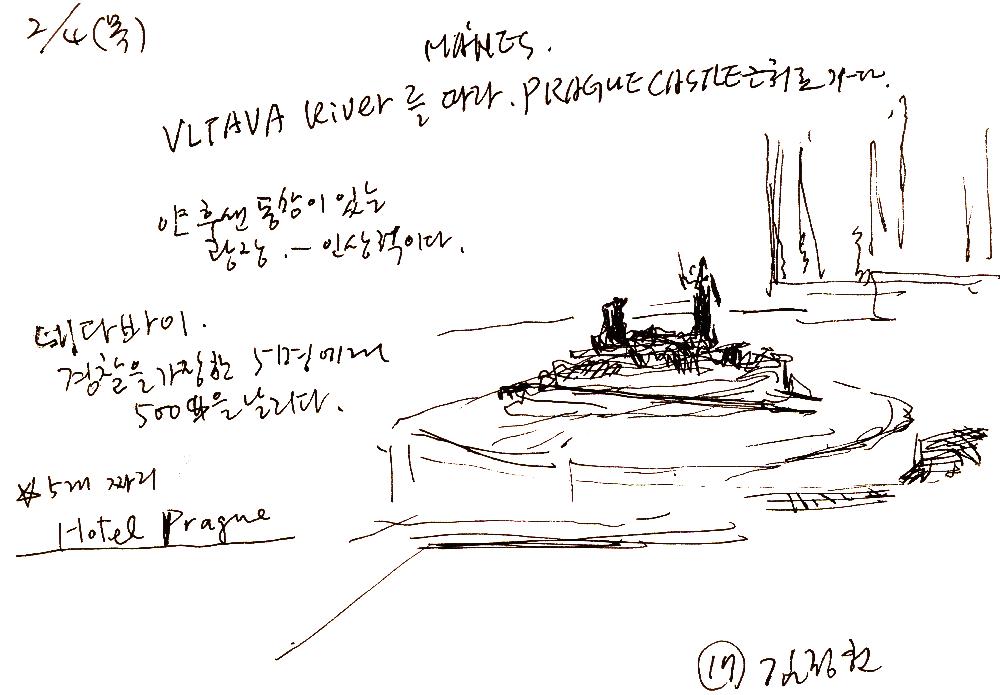 2/4(목)
MÁNES.
VLTAVA River를 따라. PRAGUE CASTLE근처로 가다.
얀 후센 동상이 있는
광장. - 인상적이다.
바이.
경찰을 가장한 5명에게
500$을 날리다.
☆5개 짜리
Hotel Prague
⑰ 김정헌